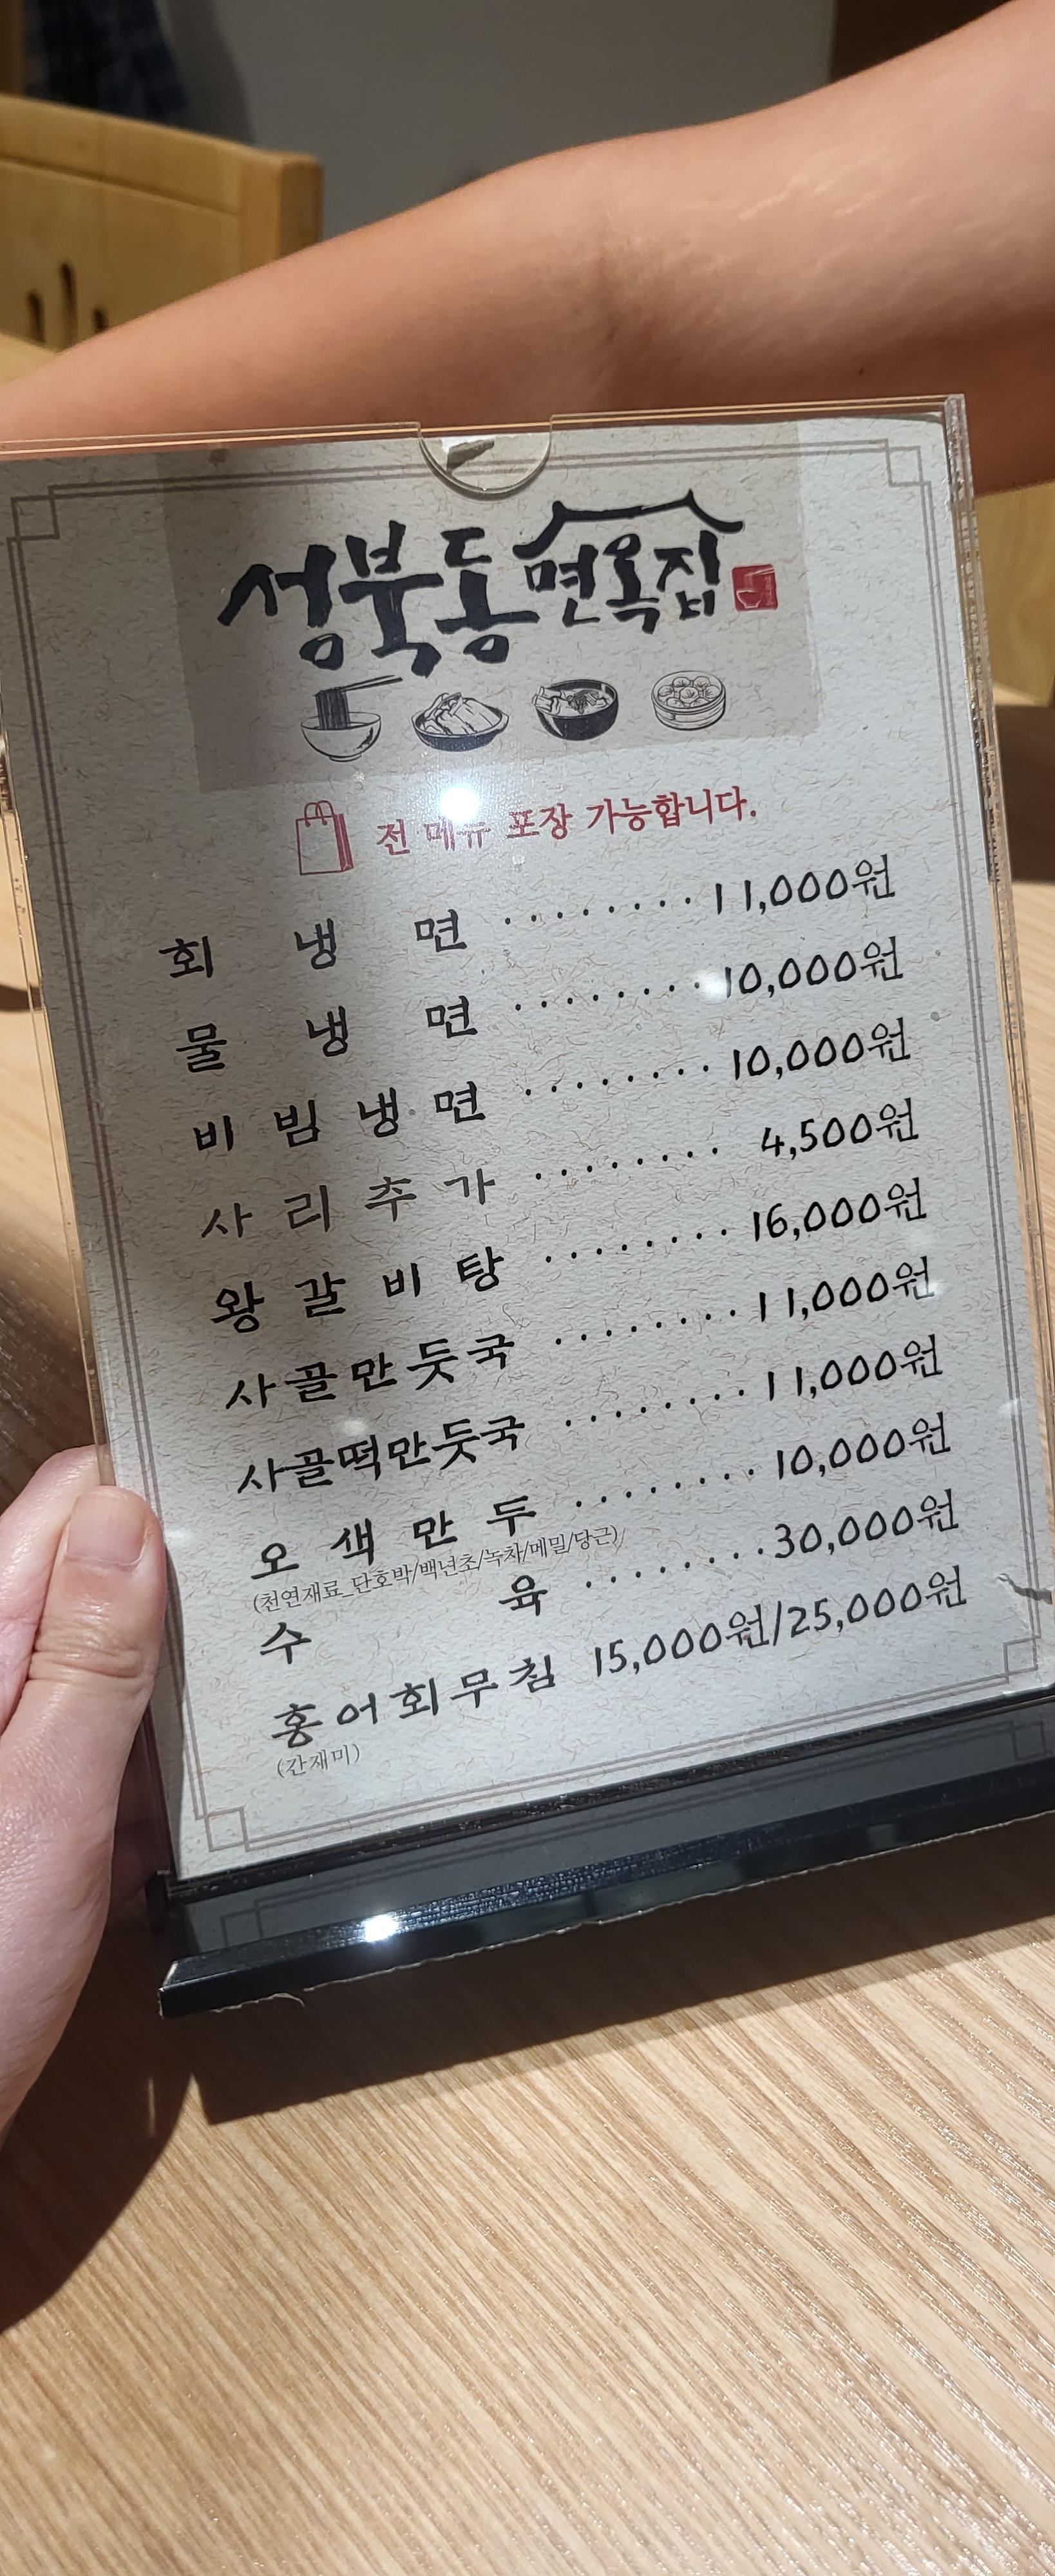 성북동 면옥집
전 메뉴 포장 가능합니다.
회 냉 면 ········ 11,000원
물 냉 면 ········ 10,000원
비 빔 냉 면 ········ 10,000원
사 리 추 가 ········ 4,500원
왕 갈 비 탕 ········ 16,000원
사골만둣국 ········ 11,000원
사골떡만둣국 ········ 11,000원
오 색 만 두 ········ 10,000원
(천연재료_단호박/백년초/녹차/메밀/당근)
수 육 ········ 30,000원
홍어회무침 15,000원/25,000원
(간재미)